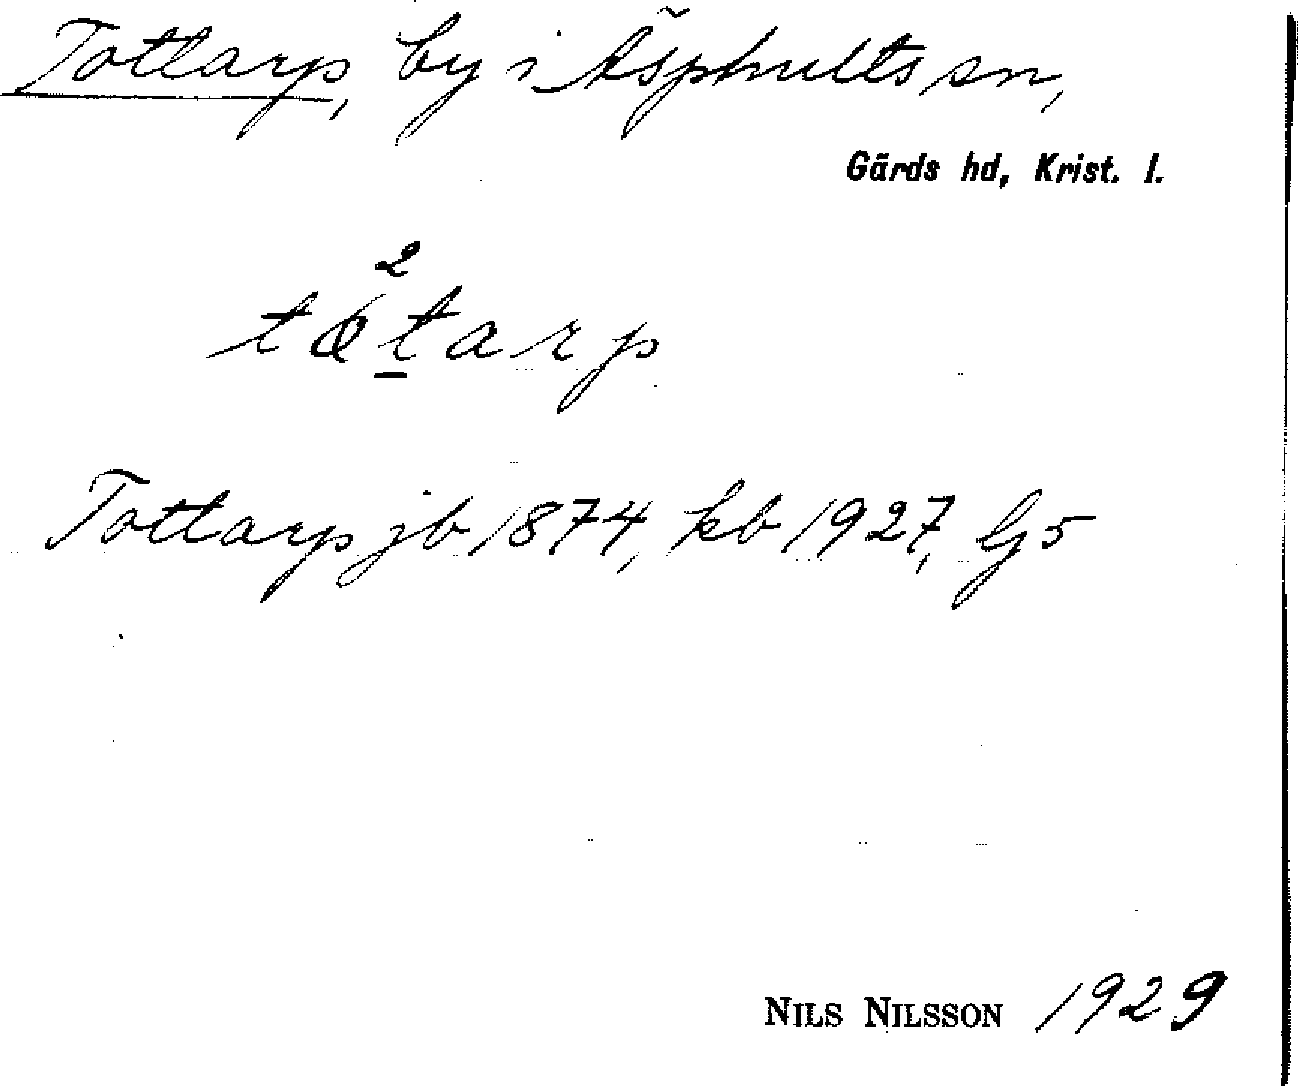 Tottarp, by i Äsphults sn,
Gärds hd, Krist. l.
2
tòtarp
Tottarp jb 1874, kb 1927, G5
NILS NILSSON 1929